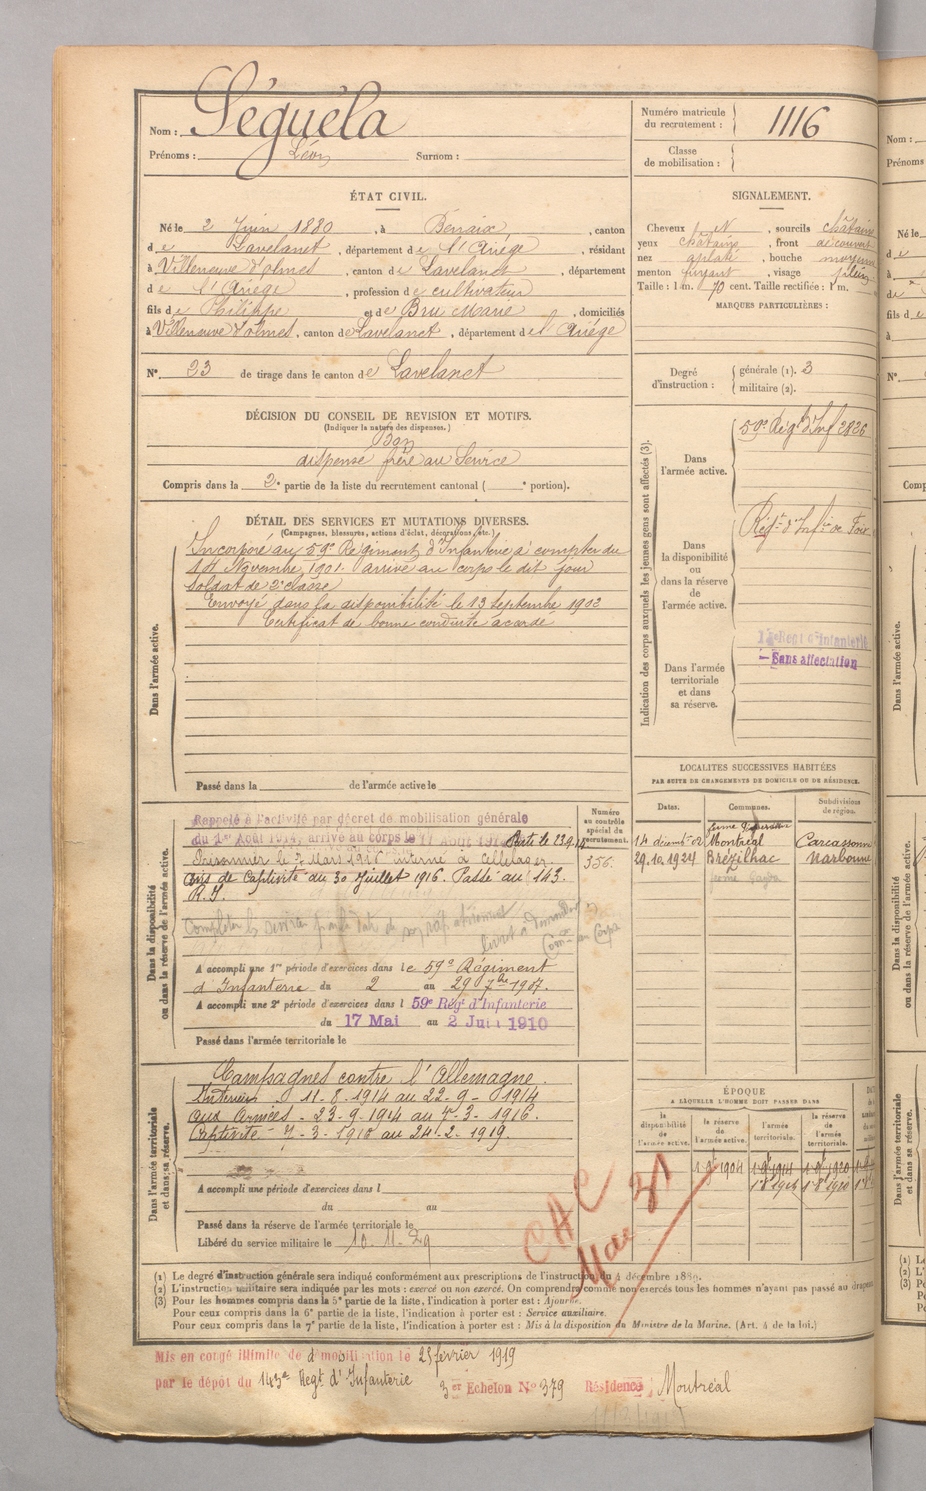 Nom : Séguéla
Prénoms : Léon Surnom :
Numéro matricule du recrutement : 1116
Classe de mobilisation :
ÉTAT CIVIL.
Né le 2 Juin 1880, à Bénaix, canton
de Lavelanet, département de l'Ariège, résidant
à Villeneuve d'Olmes, canton de Lavelanet, département
de l'Ariège, profession de cultivateur
fils de Philippe et de Bru Marie, domiciliés
à Villeneuve d'Olmes, canton de Lavelanet, département de l'Ariège
N° 23 de tirage dans le canton de Lavelanet
SIGNALEMENT.
Cheveux N, sourcils châtains
yeux châtains, front découvert
nez aplati, bouche moyenne
menton fuyant, visage plein
Taille : 1 m. 70 cent. Taille rectifiée : 1 m.
MARQUES PARTICULIÈRES :
Degré d'instruction : générale (1). 3
militaire (2).
DÉCISION DU CONSEIL DE REVISION ET MOTIFS.
(Indiquer la nature des dispenses.)
Bon
dispensé frère au Service
Compris dans la 2e partie de la liste du recrutement cantonal ( e portion).
DÉTAIL DES SERVICES ET MUTATIONS DIVERSES.
(Campagnes, blessures, actions d'éclat, décorations, etc.)
Dans l'armée active.
Incorporé au 59e Régiment d'Infanterie à compter du
14 Novembre 1901. arrivé au corps le dit jour
soldat de 2e classe
Envoyé dans la disponibilité le 13 Septembre 1902
Certificat de bonne conduite accordé
Passé dans la de l'armée active le
Indication des corps auxquels les jeunes gens sont affectés (3).
Dans l'armée active.
59e Régt d'Inf 2826
Dans la disponibilité ou dans la réserve de l'armée active.
Régt d'Infie de Foix
Dans l'armée territoriale et dans sa réserve.
Regt d'Infanterie
Sans affectation
LOCALITÉS SUCCESSIVES HABITÉES
PAR SUITE DE CHANGEMENTS DE DOMICILE OU DE RÉSIDENCE.
Dates. Communes. Subdivisions de région.
14 décemb 02 Montréal Carcassonne
29.10.1924 Brézilhac Narbonne
Dans la disponibilité ou dans la réserve de l'armée active.
Numéro au contrôle spécial du recrutement.
356.
Rappelé à l'activité par décret de mobilisation générale
du 1er Août 1914, arrivé au corps le 11 Août 1914 Parti le 23.9.14
Prisonnier le 7 Mars 1916 interné à Cellelager.
avis de Captivité du 30 Juillet 1916. Passé au 143.
R.I.
A accompli une 1re période d'exercices dans le 59e Régiment
d'Infanterie du 2 au 29 7bre 1907.
A accompli une 2e période d'exercices dans l 59e Régt d'Infanterie
du 17 Mai au 2 Juin 1910
Passé dans l'armée territoriale le
Dans l'armée territoriale et dans sa réserve.
Campagnes contre l'Allemagne.
Intérieur 11-8-1914 au 22-9-1914
aux Armées - 23-9-1914 au 7-3-1916.
Captivité - 7-3-1916 au 24-2-1919.
A accompli une période d'exercices dans l
du au
Passé dans la réserve de l'armée territoriale le
Libéré du service militaire le 10.11.29
ÉPOQUE
À LAQUELLE L'HOMME DOIT PASSER DANS
la disponibilité de l'armée active. la réserve de l'armée active. l'armée territoriale. la réserve de l'armée territoriale.
1 9bre 1904 1 9bre 1914 1 9bre 1920
CAC
Mai 31
(1) Le degré d'instruction générale sera indiqué conformément aux prescriptions de l'instruction du 4 décembre 1889.
(2) L'instruction militaire sera indiquée par les mots : exercé ou non exercé. On comprendra comme non exercés tous les hommes n'ayant pas passé au drapeau
(3) Pour les hommes compris dans la 5e partie de la liste, l'indication à porter est : Ajourné.
Pour ceux compris dans la 6e partie de la liste, l'indication à porter est : Service auxiliaire.
Pour ceux compris dans la 7e partie de la liste, l'indication à porter est : Mis à la disposition du Ministre de la Marine. (Art. 4 de la loi.)
Mis en congé illimité de démobilisation le 25 février 1919
par le dépôt du 143me Regt d'Infanterie 3er Echelon N° 379 Résidence : Montréal